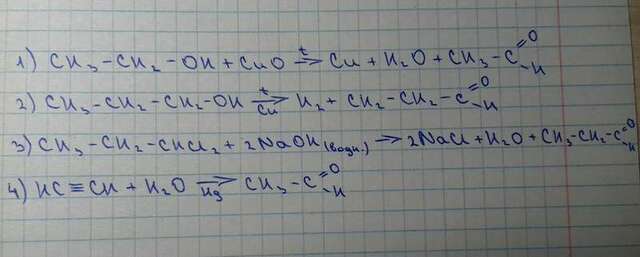 1) CH₃-CH₂-OH + CuO →(t) Cu + H₂O + CH₃-C(=O)-H
2) CH₃-CH₂-CH₂-OH →(t, Cu) H₂ + CH₂-CH₂-C(=O)-H
3) CH₃-CH₂-CHCl₂ + 2NaOH(водн.) → 2NaCl + H₂O + CH₃-CH₂-C(=O)-H
4) HC≡CH + H₂O →(Hg) CH₃-C(=O)-H